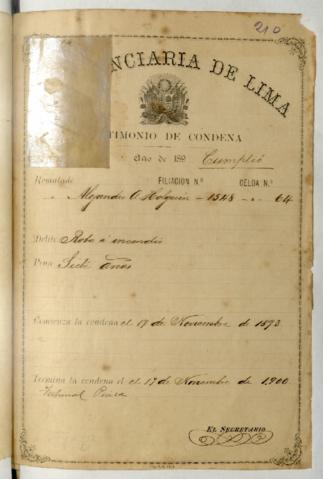 210
NCIARIA DE LIMA
TIMONIO DE CONDENA
Año de 189 Cumplió
Rematado FILIACION N.º CELDA N.º
Alejandro O. Holguin - 1548 - 64
Delito Robo é incendio
Pena Siete años
Comienza la condena el 17 de Noviembre de 1893
Termina la condena el el 17 de Noviembre de 1900
Tribunal Piura
EL SECRETARIO